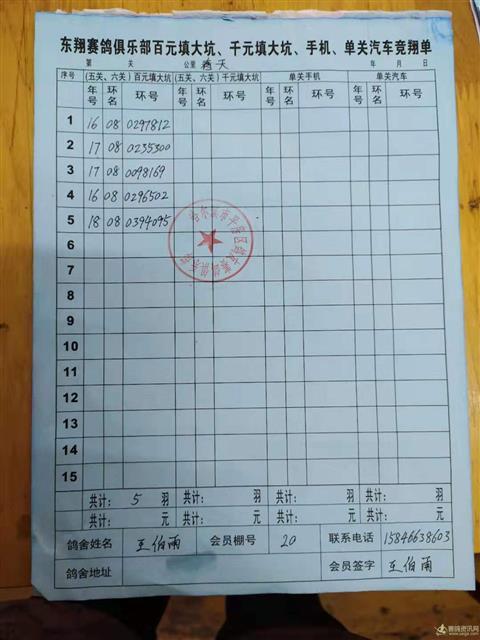 东翔赛鸽俱乐部百元填大坑、千元填大坑、手机、单关汽车竞翔单
第 关 公里 年 月 日
序号 (五关、六关)百元填大坑 (五关、六关)千元填大坑 单关手机 单关汽车
年号 环名 环号 年号 环名 环号 年号 环名 环号 年号 环名 环号
1 16 08 0297812
2 17 08 0235300
3 17 08 0098169
4 16 08 0296502
5 18 08 0394095
6
7
8
9
10
11
12
13
14
15
共计: 5 羽 共计: 羽 共计: 羽 共计: 羽
共计: 元 共计: 元 共计: 元 共计: 元
鸽舍姓名 王伯雨 会员棚号 20 联系电话 15846638603
鸽舍地址 会员签字 王伯雨
赛鸽资讯网